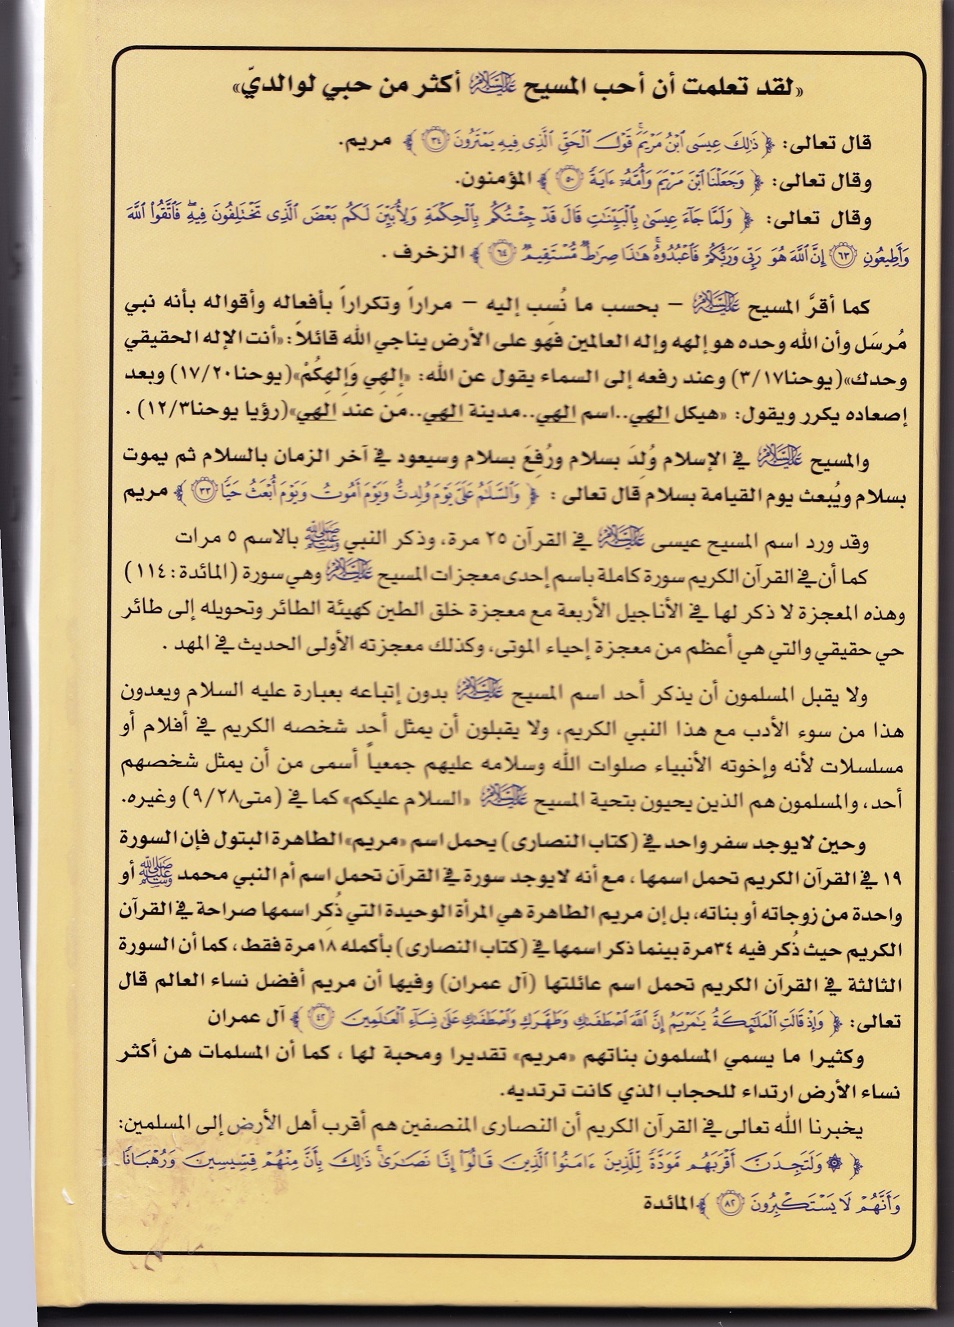 «لقد تعلمت أن أحب المسيح عليه السلام أكثر من حبي لوالديّ»
قال تعالى: ﴿ ذَٰلِكَ عِيسَى ابْنُ مَرْيَمَ قَوْلَ الْحَقِّ الَّذِي فِيهِ يَمْتَرُونَ ٣٤ ﴾ مريم.
وقال تعالى: ﴿ وَجَعَلْنَا ابْنَ مَرْيَمَ وَأُمَّهُ ءَايَةً ٥٠ ﴾ المؤمنون.
وقال تعالى: ﴿ وَلَمَّا جَآءَ عِيسَىٰ بِالْبَيِّنَٰتِ قَالَ قَدْ جِئْتُكُم بِالْحِكْمَةِ وَلِأُبَيِّنَ لَكُم بَعْضَ الَّذِي تَخْتَلِفُونَ فِيهِ فَاتَّقُوا اللَّهَ
وَأَطِيعُونِ ٦٣ إِنَّ اللَّهَ هُوَ رَبِّي وَرَبُّكُمْ فَاعْبُدُوهُ هَٰذَا صِرَٰطٌ مُّسْتَقِيمٌ ٦٤ ﴾ الزخرف .
كما أقرَّ المسيح عليه السلام – بحسب ما نُسِب إليه – مراراً وتكراراً بأفعاله وأقواله بأنه نبي
مُرسَل وأن الله وحده هو إلهه وإله العالمين فهو على الأرض يناجي الله قائلاً: «أنت الإله الحقيقي
وحدك»(يوحنا٣/١٧) وعند رفعه إلى السماء يقول عن الله: «إلهِي وَإلهِكُمْ»(يوحنا١٧/٢٠) وبعد
إصعاده يكرر ويقول: «هيكل إلهي..اسم إلهي..مدينة إلهي..من عند إلهي»(رؤيا يوحنا١٢/٣) .
والمسيح عليه السلام في الإسلام وُلِدَ بسلام ورُفِعَ بسلام وسيعود في آخر الزمان بالسلام ثم يموت
بسلام ويُبعث يوم القيامة بسلام قال تعالى : ﴿ وَالسَّلَٰمُ عَلَيَّ يَوْمَ وُلِدتُّ وَيَوْمَ أَمُوتُ وَيَوْمَ أُبْعَثُ حَيًّا ٣٣ ﴾ مريم
وقد ورد اسم المسيح عيسى عليه السلام في القرآن ٢٥ مرة، وذكر النبي صلى الله عليه وسلم بالاسم ٥ مرات
كما أن في القرآن الكريم سورة كاملة باسم إحدى معجزات المسيح عليه السلام وهي سورة (المائدة: ١١٤)
وهذه المعجزة لا ذكر لها في الأناجيل الأربعة مع معجزة خلق الطين كهيئة الطائر وتحويله إلى طائر
حي حقيقي والتي هي أعظم من معجزة إحياء الموتى، وكذلك معجزته الأولى الحديث في المهد .
ولا يقبل المسلمون أن يذكر أحد اسم المسيح عليه السلام بدون إتباعه بعبارة عليه السلام ويعدون
هذا من سوء الأدب مع هذا النبي الكريم، ولا يقبلون أن يمثل أحد شخصه الكريم في أفلام أو
مسلسلات لأنه وإخوته الأنبياء صلوات الله وسلامه عليهم جمعياً أسمى من أن يمثل شخصهم
أحد، والمسلمون هم الذين يحيون بتحية المسيح عليه السلام «السلام عليكم» كما في (متى٩/٢٨) وغيره.
وحين لا يوجد سفر واحد في (كتاب النصارى) يحمل اسم «مريم» الطاهرة البتول فإن السورة
١٩ في القرآن الكريم تحمل اسمها ، مع أنه لا يوجد سورة في القرآن تحمل اسم أم النبي محمد صلى الله عليه وسلم أو
واحدة من زوجاته أو بناته، بل إن مريم الطاهرة هي المرأة الوحيدة التي ذُكِر اسمها صراحة في القرآن
الكريم حيث ذُكر فيه ٣٤مرة بينما ذكر اسمها في (كتاب النصارى) بأكمله ١٨ مرة فقط ، كما أن السورة
الثالثة في القرآن الكريم تحمل اسم عائلتها (آل عمران) وفيها أن مريم أفضل نساء العالم قال
تعالى: ﴿ وَإِذْ قَالَتِ الْمَلَٰٓئِكَةُ يَٰمَرْيَمُ إِنَّ اللَّهَ اصْطَفَىٰكِ وَطَهَّرَكِ وَاصْطَفَىٰكِ عَلَىٰ نِسَآءِ الْعَٰلَمِينَ ٤٢ ﴾ آل عمران
وكثيرا ما يسمي المسلمون بناتهم «مريم» تقديرا ومحبة لها ، كما أن المسلمات هن أكثر
نساء الأرض ارتداء للحجاب الذي كانت ترتديه.
يخبرنا الله تعالى في القرآن الكريم أن النصارى المنصفين هم أقرب أهل الأرض إلى المسلمين:
﴿ ۞ وَلَتَجِدَنَّ أَقْرَبَهُم مَّوَدَّةً لِّلَّذِينَ ءَامَنُوا الَّذِينَ قَالُوٓا إِنَّا نَصَٰرَىٰ ذَٰلِكَ بِأَنَّ مِنْهُمْ قِسِّيسِينَ وَرُهْبَانًا
وَأَنَّهُمْ لَا يَسْتَكْبِرُونَ ٨٢ ﴾ المائدة